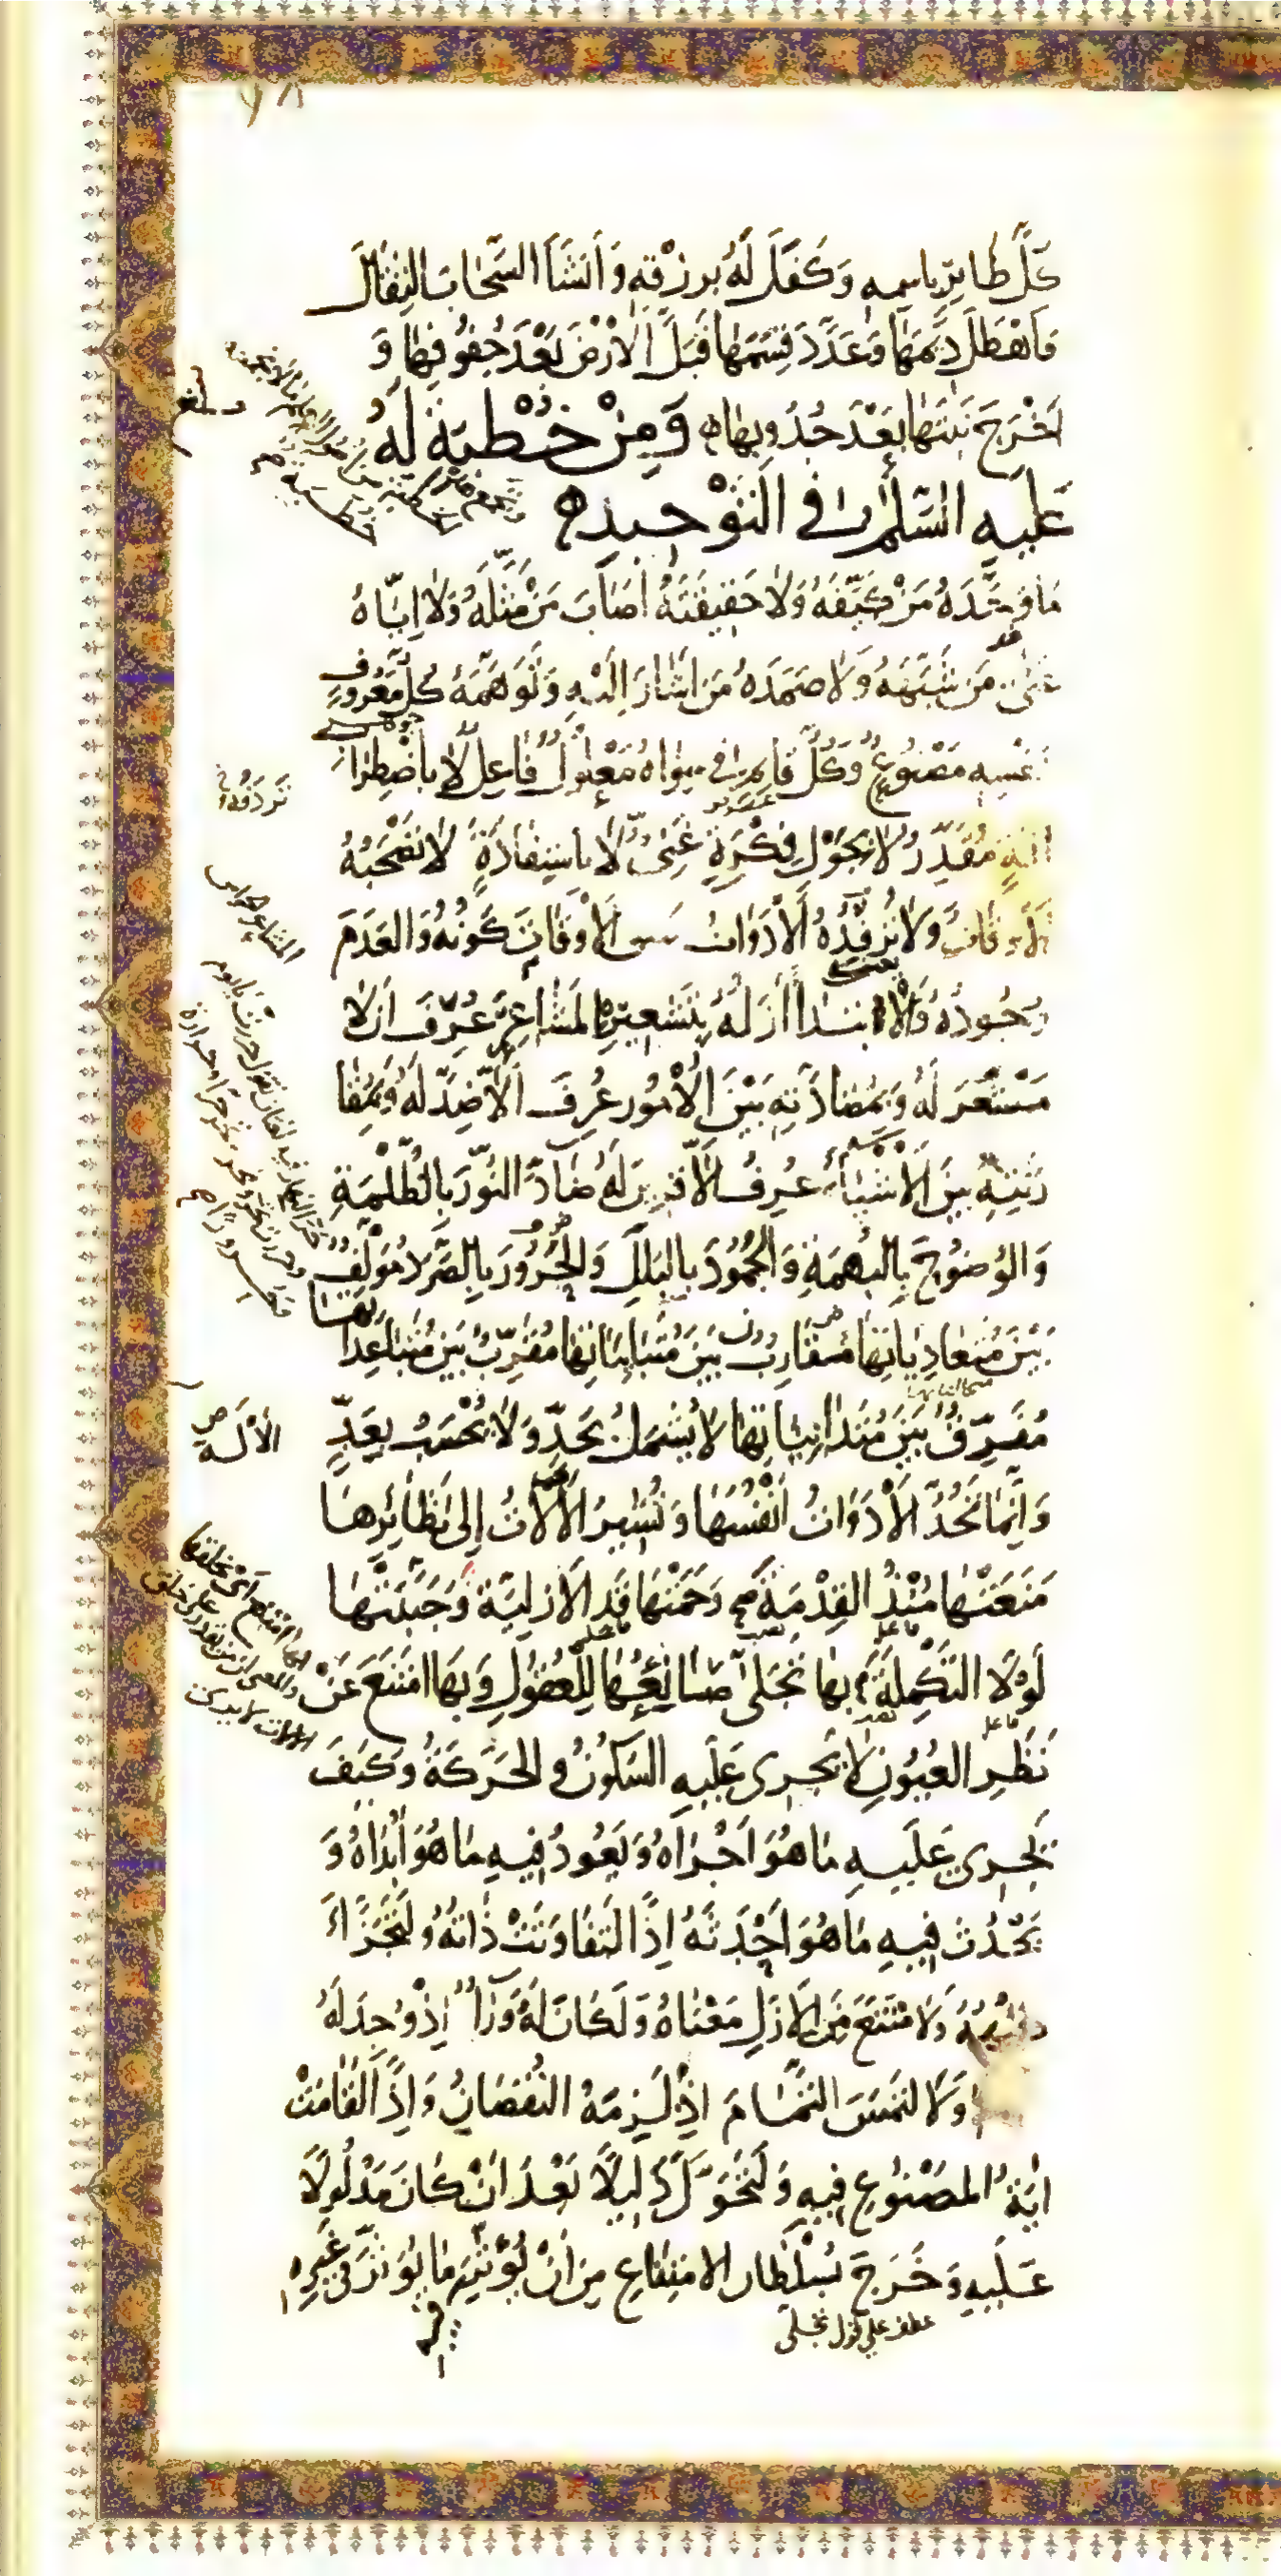 كُلَّ طَائِرٍ بِاسمِهِ وَكَفَلَ لَهُ بِرِزْقِهِ وَأَنْشَأَ السَّحَابَ الثِّقَالَ
فَاَهْطَلَ دِيَمَهَا وَعَدَّدَ قِسَمَهَا فَبَلَّ الْأَرْضَ بَعْدَ جُفُوفِهَا وَ
اَخْرَجَ نَبْتَهَا بَعْدَ جُدُوبِهَا وَمِنْ خُطْبَةٍ لَهُ
عَلَيهِ السَّلَامُ فِي التَّوْحِيدِ
مَا وَحَّدَهُ مَنْ كَيَّفَهُ وَلَا حَقِيقَتَهُ اَصَابَ مَنْ مَثَّلَهُ وَلَا اِيَّاهُ
عَنَى مَن شَبَّهَهُ وَلَا صَمَدَهُ مَن اَشَارَ اِلَيْهِ وَتَوَهَّمَهُ كُلُّ مَعْرُوفٍ
بِنَفْسِهِ مَصْنُوعٌ وَكُلُّ قَائِمٍ فِي سِوَاهُ مَعْلُولٌ فَاعِلٌ لَا بِاضْطِرَابِ
آلَةٍ مُقَدِّرٌ لَا بِجَوْلِ فِكْرَةٍ غَنِيٌّ لَا بِاسْتِفَادَةٍ لَا تَصْحَبُهُ
الْأَوقَاتُ وَلَا تُرْفِدُهُ الْأَدَوَاتُ سَبَقَ الْأَوْقَاتَ كَوْنُهُ وَالعَدَمَ
وُجُودُهُ وَالْاِبتِدَاءَ أَزَلُهُ بِتَشْعِيرِهِ المَشَاعِرَ عُرِفَ اَن لَا
مَشْعَرَ لَهُ وَبِمُضَادَّتِهِ بَيْنَ الْأُمُورِ عُرِفَ اَلَّا ضِدَّ لَهُ وَبِمُقَا
رَنَتِهِ بَينَ الْأَشْيَاءِ عُرِفَ اَلَّا قَرِينَ لَهُ ضَادَّ النُّورَ بِالظُّلْمَةِ
وَالوُضُوحَ بِالبُهمَةِ وَالجُمُودَ بِالبَلَلِ وَالحَرُورَ بِالصَّرَدِ مُؤَلِّفٌ
بَيْنَ مُتَعَادِيَاتِهَا مُقَارِنٌ بَينَ مُتَبَايِنَاتِهَا مُقَرِّبٌ بَينَ مُتَبَاعِدَاتِهَا
مُفَرِّقٌ بَيْنَ مُتَدَانِيَاتِهَا لَا يُشْمَلُ بِحَدٍّ وَلَا يُحْسَبُ بِعَدٍّ
وَاِنَّمَا تَحُدُّ الْأَدَوَاتُ اَنْفُسَهَا وَتُشِيرُ الْآلَاتُ إِلَى نَظَائِرِهَا
مَنَعَتْهَا مُنْذُ القِدْمَةَ وَحَمَتْهَا قَدُ الْأَزَلِيَّةَ وَجَنَّبَتْهَا
لَوْلَا التَّكْمِلَةَ بِهَا تَجَلَّى صَانِعُهَا لِلْعُقُولِ وَبِهَا امْتَنَعَ عَنْ
نَظَرِ العُيُونِ لَا يَجرِى عَلَيهِ السُّكُونُ وَالحَرَكَةُ وَكَيفَ
يَجرِى عَلَيهِ مَا هُوَ اَجْرَاهُ وَيَعُودُ فِيهِ مَا هُوَ اَبْدَاهُ وَ
يَحْدُثُ فِيهِ مَا هُوَ اَحْدَثَهُ اِذًا لَتَفَاوَتَتْ ذَاتُهُ وَلَتَجَزَّأَ
كُنْهُهُ وَلَامْتَنَعَ مِنَ الْاَزَلِ مَعْنَاهُ وَلَكَانَ لَهُ وَرَاءٌ اِذْ وُجِدَ لَهُ
وَلَالتَمَسَ التَّمَامَ اِذْ لَزِمَهُ النُّقْصَانُ وَاِذًا لَقَامَتْ
ايَةُ المَصْنُوعِ فِيهِ وَلَتَحَوَّلَ دَلِيلًا بَعْدَ اَنْ كَانَ مَدْلُولًا
عَلَيهِ وَخَرَجَ بِسُلْطَانِ الامتِنَاعِ مِن اَنْ يُؤَثِّرَ فِيهِ مَا يُؤَثِّرُ فِي غَيرِهِ
عطف على قوله تجلى